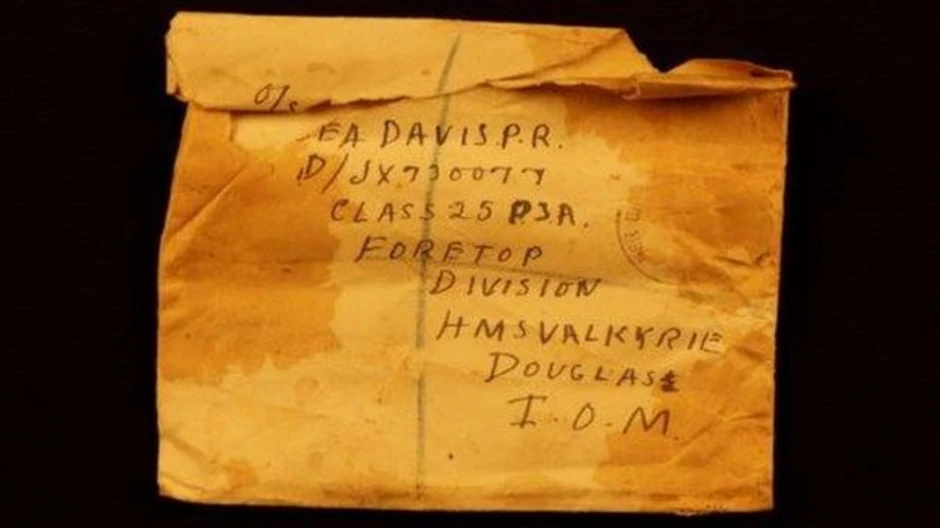 O/S
EA DAVIS.P.R.
D/JX730077
CLASS 25 P3A.
FORETOP
DIVISION
HMSVALKYRIE
DOUGLAS
I.O.M.